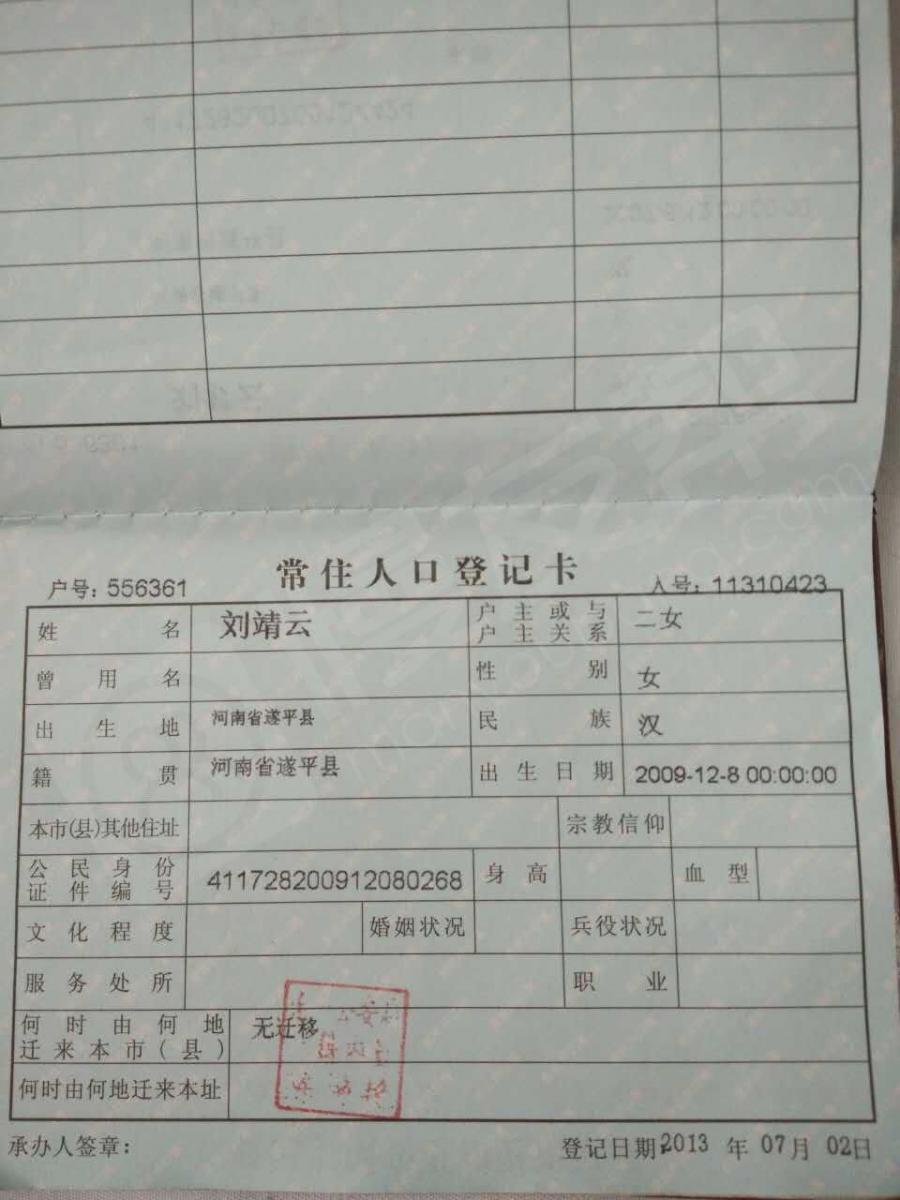 常住人口登记卡
户号：556361 人号：11310423
姓名 刘靖云 户主或与户主关系 二女
曾用名 性别 女
出生地 河南省遂平县 民族 汉
籍贯 河南省遂平县 出生日期 2009-12-8 00:00:00
本市(县)其他住址 宗教信仰
公民身份证件编号 411728200912080268 身高 血型
文化程度 婚姻状况 兵役状况
服务处所 职业
何时由何地迁来本市(县) 无迁移
何时由何地迁来本址
承办人签章： 登记日期：2013 年 07 月 02 日